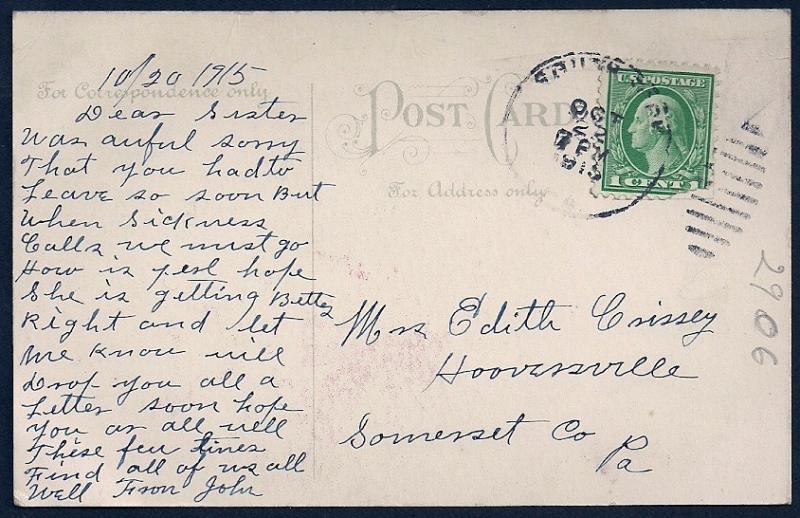 10/20 1915
For Correspondence only
Dear Sister
Was auful sorry
That you had to
Leave so soon But
When Sickness
Calls we must go
How is hope
She is getting Better
Right and let
me know will
Drop you all a
Letter soon hope
you ar all well
These few Lines
Find all of us all
Well From John
POST CARD
For Address only
OCT
7 PM
1915
U.S. POSTAGE
1 CENT 1
Mrs Edith Crissey
Hooversville
Somerset Co
Pa
2906